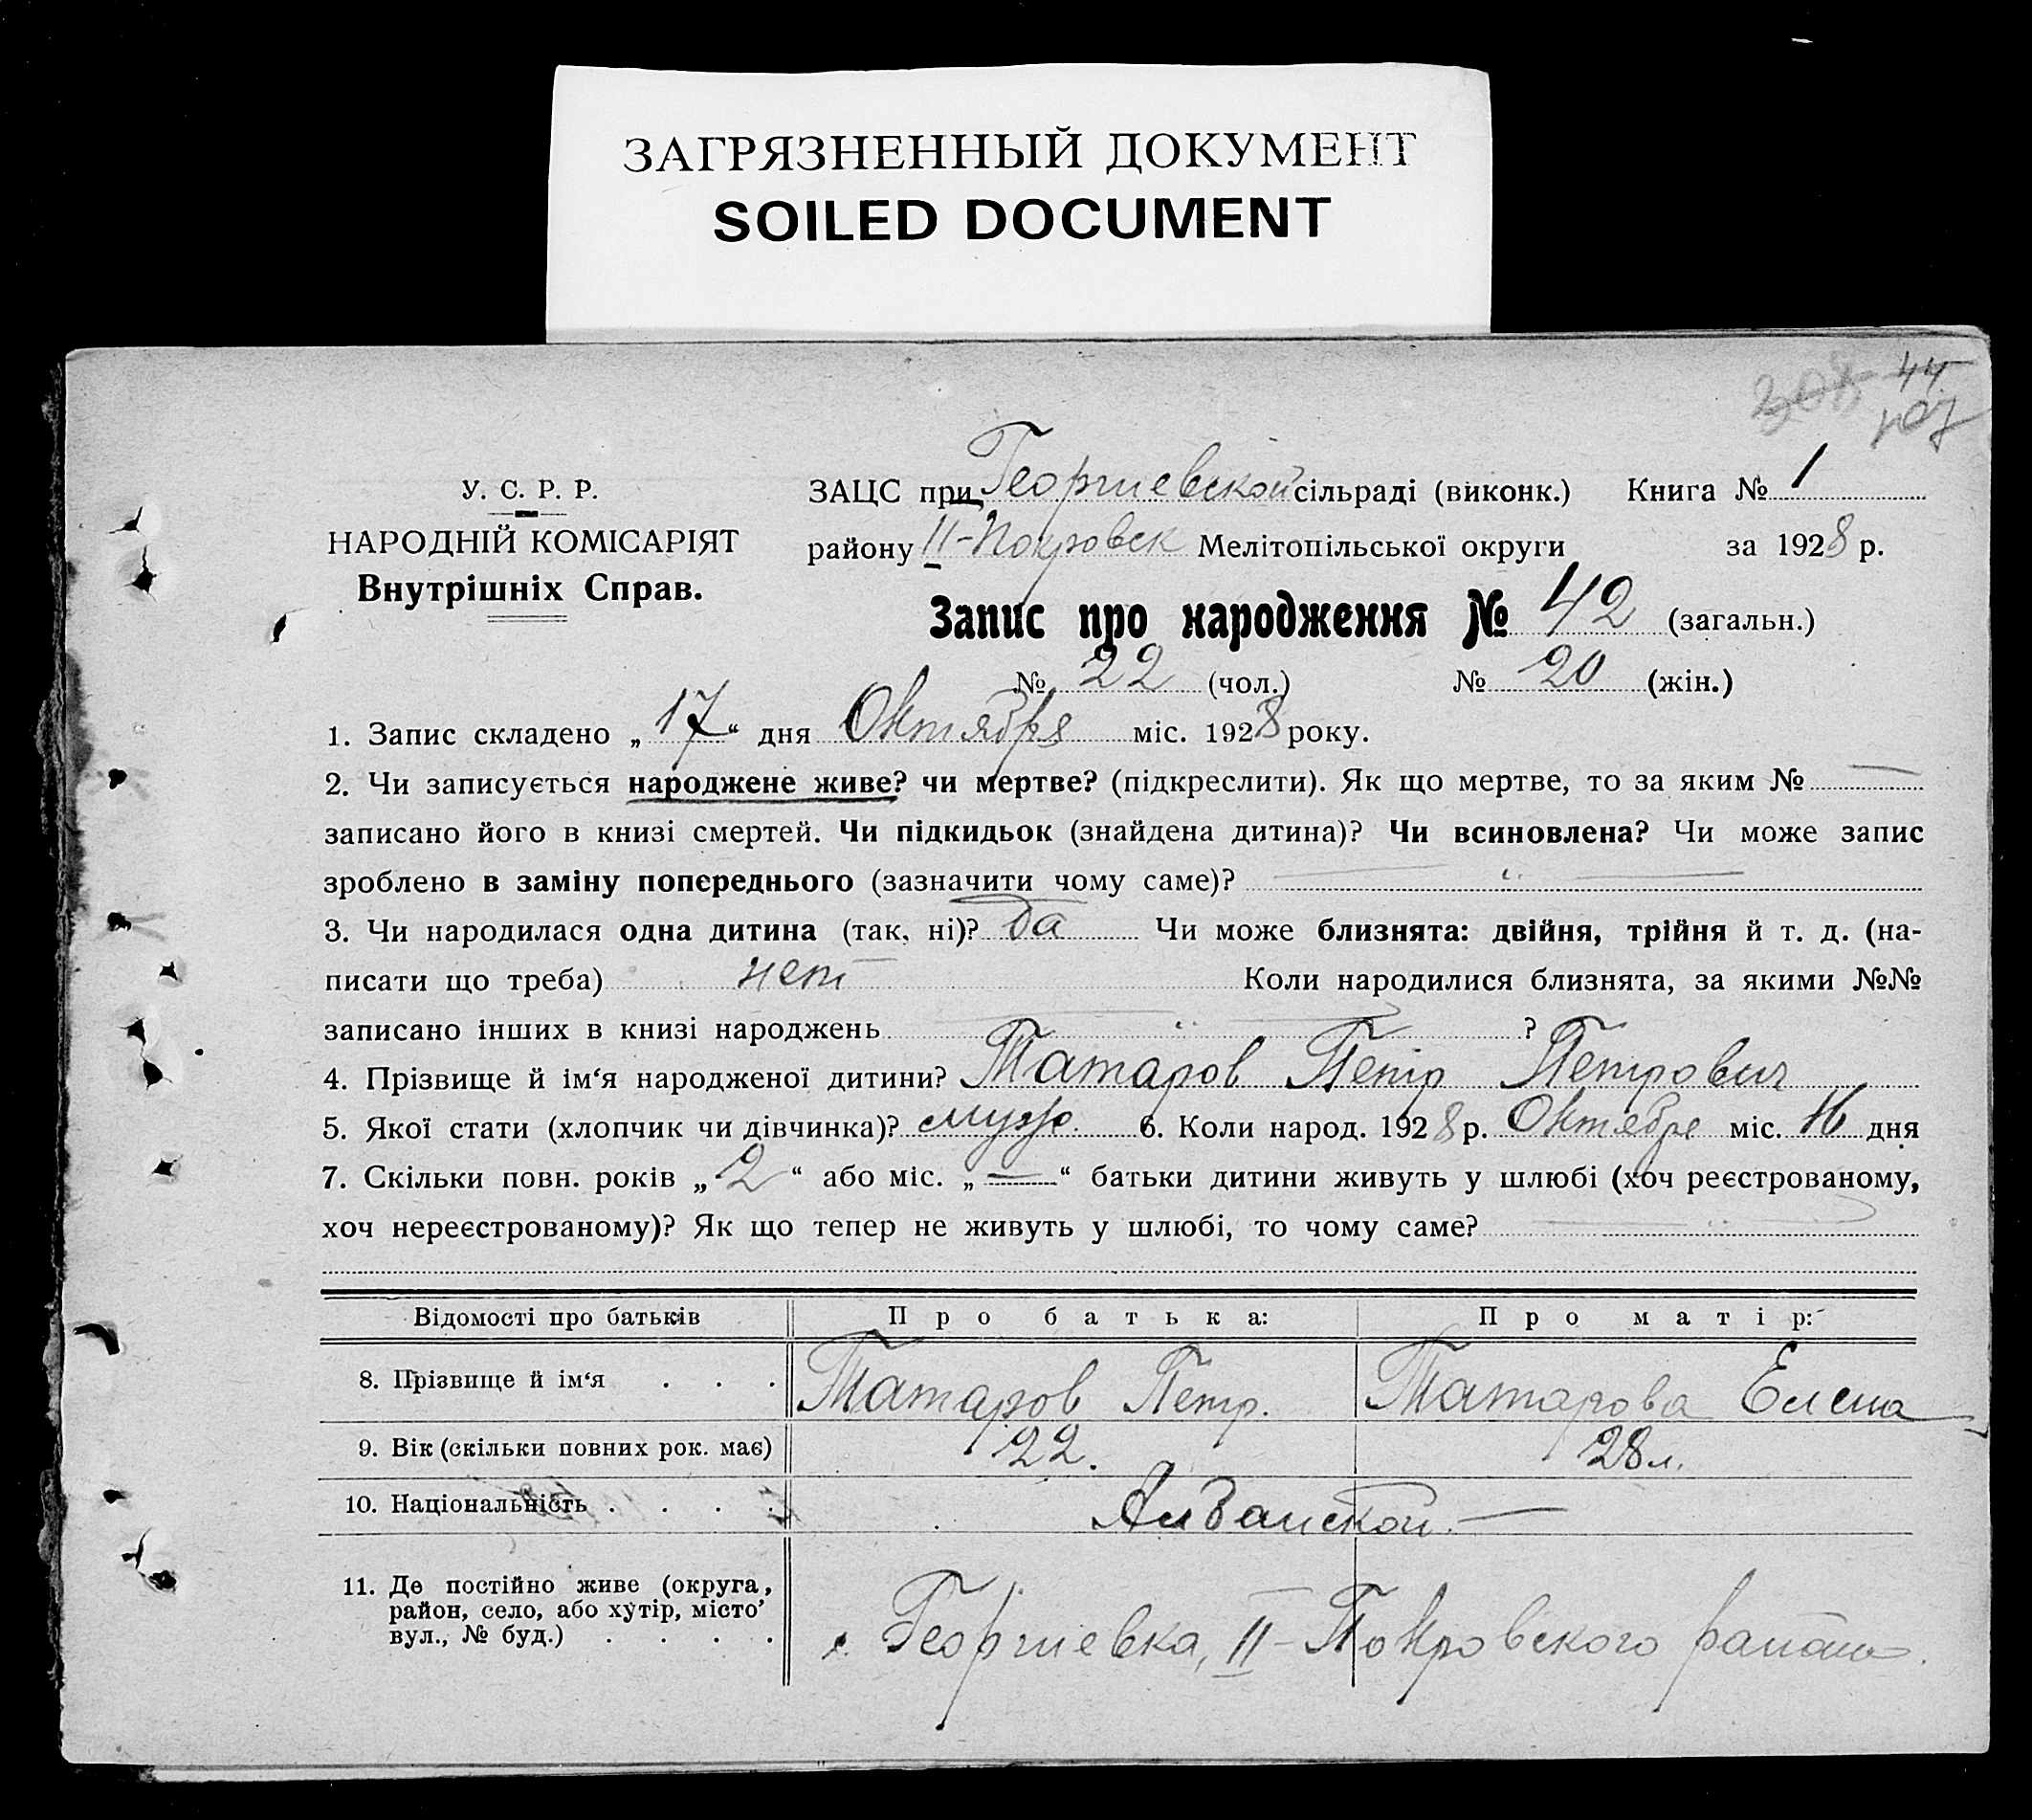 ЗАГРЯЗНЕННЫЙ ДОКУМЕНТ
SOILED DOCUMENT
308 44
107
У. С. Р. Р.
НАРОДНІЙ КОМІСАРІЯТ
Внутрішніх Справ.
ЗАЦС при Георгиевской сільраді (виконк.) Книга № 1
району II-Покровск Мелітопільської округи за 1928 р.
Запис про народження № 42 (загальн.)
№ 22 (чол.) № 20 (жін.)
1. Запис складено „17“ дня Октября міс. 1928 року.
2. Чи записується народжене живе? чи мертве? (підкреслити). Як що мертве, то за яким № —
записано його в книзі смертей. Чи підкидьок (знайдена дитина)? Чи всиновлена? Чи може запис
зроблено в заміну попереднього (зазначити чому саме)? — „ —
3. Чи народилася одна дитина (так, ні)? да Чи може близнята: двійня, трійня й т. д. (на-
писати що треба) нет Коли народилися близнята, за якими №№
записано інших в книзі народжень — „ — ?
4. Прізвище й ім‘я народженої дитини? Татаров Петр Петрович
5. Якої стати (хлопчик чи дівчинка)? муж. 6. Коли народ. 1928 р. Октября міс. 16 дня
7. Скільки повн. років „2“ або міс. „—“ батьки дитини живуть у шлюбі (хоч реєстрованому,
хоч нереєстрованому)? Як що тепер не живуть у шлюбі, то чому саме? — „ —
Відомості про батьків Про батька: Про матір:
8. Прізвище й ім‘я . . . Татаров Петр. Татарова Елена
9. Вік (скільки повних рок. має) 22. 28 л.
10. Національність . . . . Албанской. —
11. Де постійно живе (округа,
район, село, або хутір, місто,
вул., № буд.) . . . . с. Георгиевка, II-Покровского района.